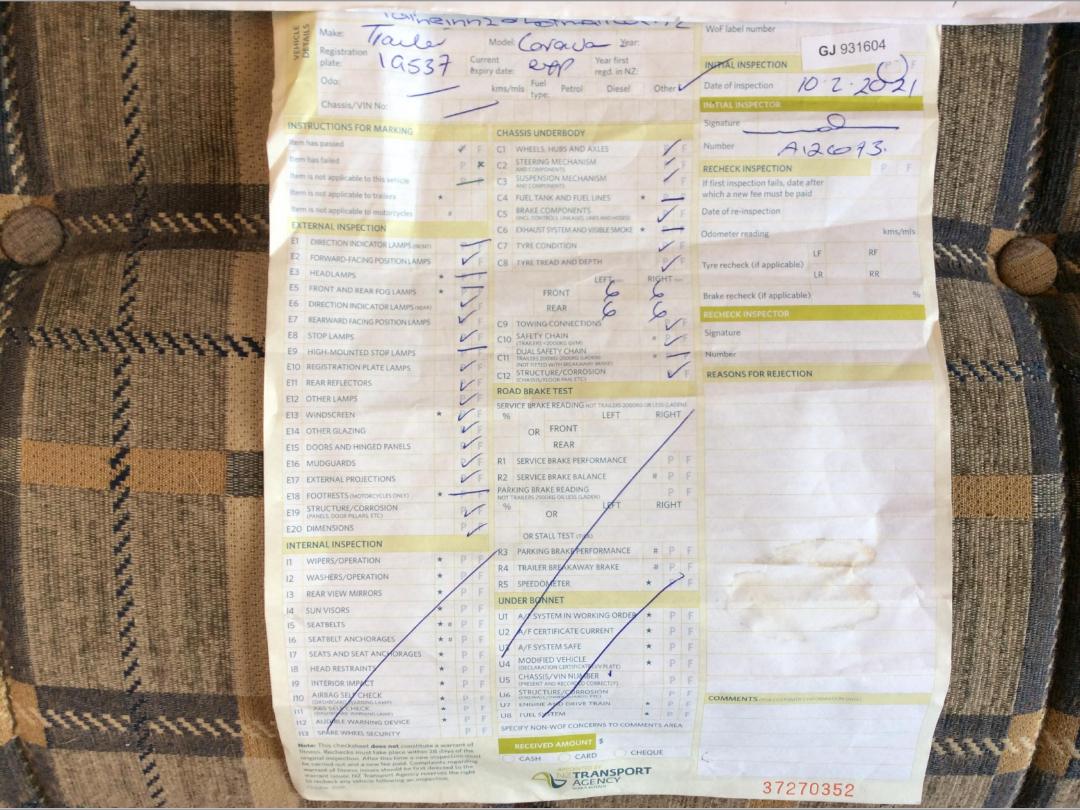 VEHICLE DETAILS
Make: Trailer Model: Year:
Registration plate: 1G537 Current expiry date: exp Year first regd. in NZ:
Odo: kms/mls Fuel type: Petrol Diesel Other
Chassis/VIN No:
INSTRUCTIONS FOR MARKING
Item has passed P F
Item has failed P F
Item is not applicable to this vehicle
Item is not applicable to trailers *
Item is not applicable to motorcycles #
EXTERNAL INSPECTION
E1 DIRECTION INDICATOR LAMPS (FRONT)
E2 FORWARD-FACING POSITION LAMPS
E3 HEADLAMPS *
E5 FRONT AND REAR FOG LAMPS *
E6 DIRECTION INDICATOR LAMPS (REAR)
E7 REARWARD FACING POSITION LAMPS
E8 STOP LAMPS
E9 HIGH-MOUNTED STOP LAMPS
E10 REGISTRATION PLATE LAMPS
E11 REAR REFLECTORS
E12 OTHER LAMPS
E13 WINDSCREEN *
E14 OTHER GLAZING
E15 DOORS AND HINGED PANELS
E16 MUDGUARDS
E17 EXTERNAL PROJECTIONS
E18 FOOTRESTS (MOTORCYCLES ONLY) *
E19 STRUCTURE/CORROSION
(PANELS, DOOR PILLARS, ETC)
E20 DIMENSIONS
INTERNAL INSPECTION
I1 WIPERS/OPERATION * P F
I2 WASHERS/OPERATION * P F
I3 REAR VIEW MIRRORS * P F
I4 SUN VISORS * P F
I5 SEATBELTS * # P F
I6 SEATBELT ANCHORAGES * # P F
I7 SEATS AND SEAT ANCHORAGES * P F
I8 HEAD RESTRAINTS * P F
I9 INTERIOR IMPACT * P F
I10 AIRBAG SELF CHECK * P F
(DASHBOARD WARNING LAMP)
I11 ABS SELF CHECK * P F
I12 AUDIBLE WARNING DEVICE * P F
I13 SPARE WHEEL SECURITY P F
Note: This checksheet does not constitute a warrant of
fitness. Rechecks must take place within 28 days of the
original inspection. After this time a new inspection must
be carried out and a new fee paid. Complaints regarding
warrant of fitness issues should be first directed to the
warrant issuer. NZ Transport Agency reserves the right
to recheck any vehicle following an inspection.
CHASSIS UNDERBODY
C1 WHEELS, HUBS AND AXLES
C2 STEERING MECHANISM
AND COMPONENTS
C3 SUSPENSION MECHANISM
AND COMPONENTS
C4 FUEL TANK AND FUEL LINES *
C5 BRAKE COMPONENTS
(INCL. CONTROLS, LINKAGES, LINES AND HOSES)
C6 EXHAUST SYSTEM AND VISIBLE SMOKE *
C7 TYRE CONDITION
C8 TYRE TREAD AND DEPTH
LEFT RIGHT
FRONT 6 6
REAR 6 6
C9 TOWING CONNECTIONS
C10 SAFETY CHAIN #
C11 DUAL SAFETY CHAIN *
(NOT FITTED WITH BREAKAWAY BRAKE)
C12 STRUCTURE/CORROSION
(CHASSIS/FLOOR PAN, ETC)
ROAD BRAKE TEST
SERVICE BRAKE READING NOT TRAILERS 2000KG OR LESS (LADEN)
% LEFT RIGHT
OR FRONT
REAR
R1 SERVICE BRAKE PERFORMANCE P F
R2 SERVICE BRAKE BALANCE # P F
PARKING BRAKE READING P F
NOT TRAILERS 2500KG OR LESS (LADEN)
% LEFT RIGHT
OR
OR STALL TEST (TICK)
R3 PARKING BRAKE PERFORMANCE # P F
R4 TRAILER BREAKAWAY BRAKE # P F
R5 SPEEDOMETER * F
UNDER BONNET
U1 A/F SYSTEM IN WORKING ORDER * P F
U2 A/F CERTIFICATE CURRENT * P F
U3 A/F SYSTEM SAFE * P F
U4 MODIFIED VEHICLE * P F
(DECLARATION CERTIFICATE/LVV PLATE)
U5 CHASSIS/VIN NUMBER P F
(PRESENT AND RECORDED CORRECTLY)
U6 STRUCTURE/CORROSION P F
U7 ENGINE AND DRIVE TRAIN * P F
U8 FUEL SYSTEM * P F
SPECIFY NON-WOF CONCERNS TO COMMENTS AREA
RECEIVED AMOUNT $
CASH CARD CHEQUE
NZ TRANSPORT
AGENCY
WAKA KOTAHI
WoF label number
GJ 931604
INITIAL INSPECTION P F
Date of inspection 10-2-2021
INITIAL INSPECTOR
Signature
Number
RECHECK INSPECTION P F
If first inspection fails, date after
which a new fee must be paid
Date of re-inspection
Odometer reading kms/mls
Tyre recheck (if applicable) LF RF
LR RR
Brake recheck (if applicable) %
RECHECK INSPECTOR
Signature
Number
REASONS FOR REJECTION
COMMENTS
37270352